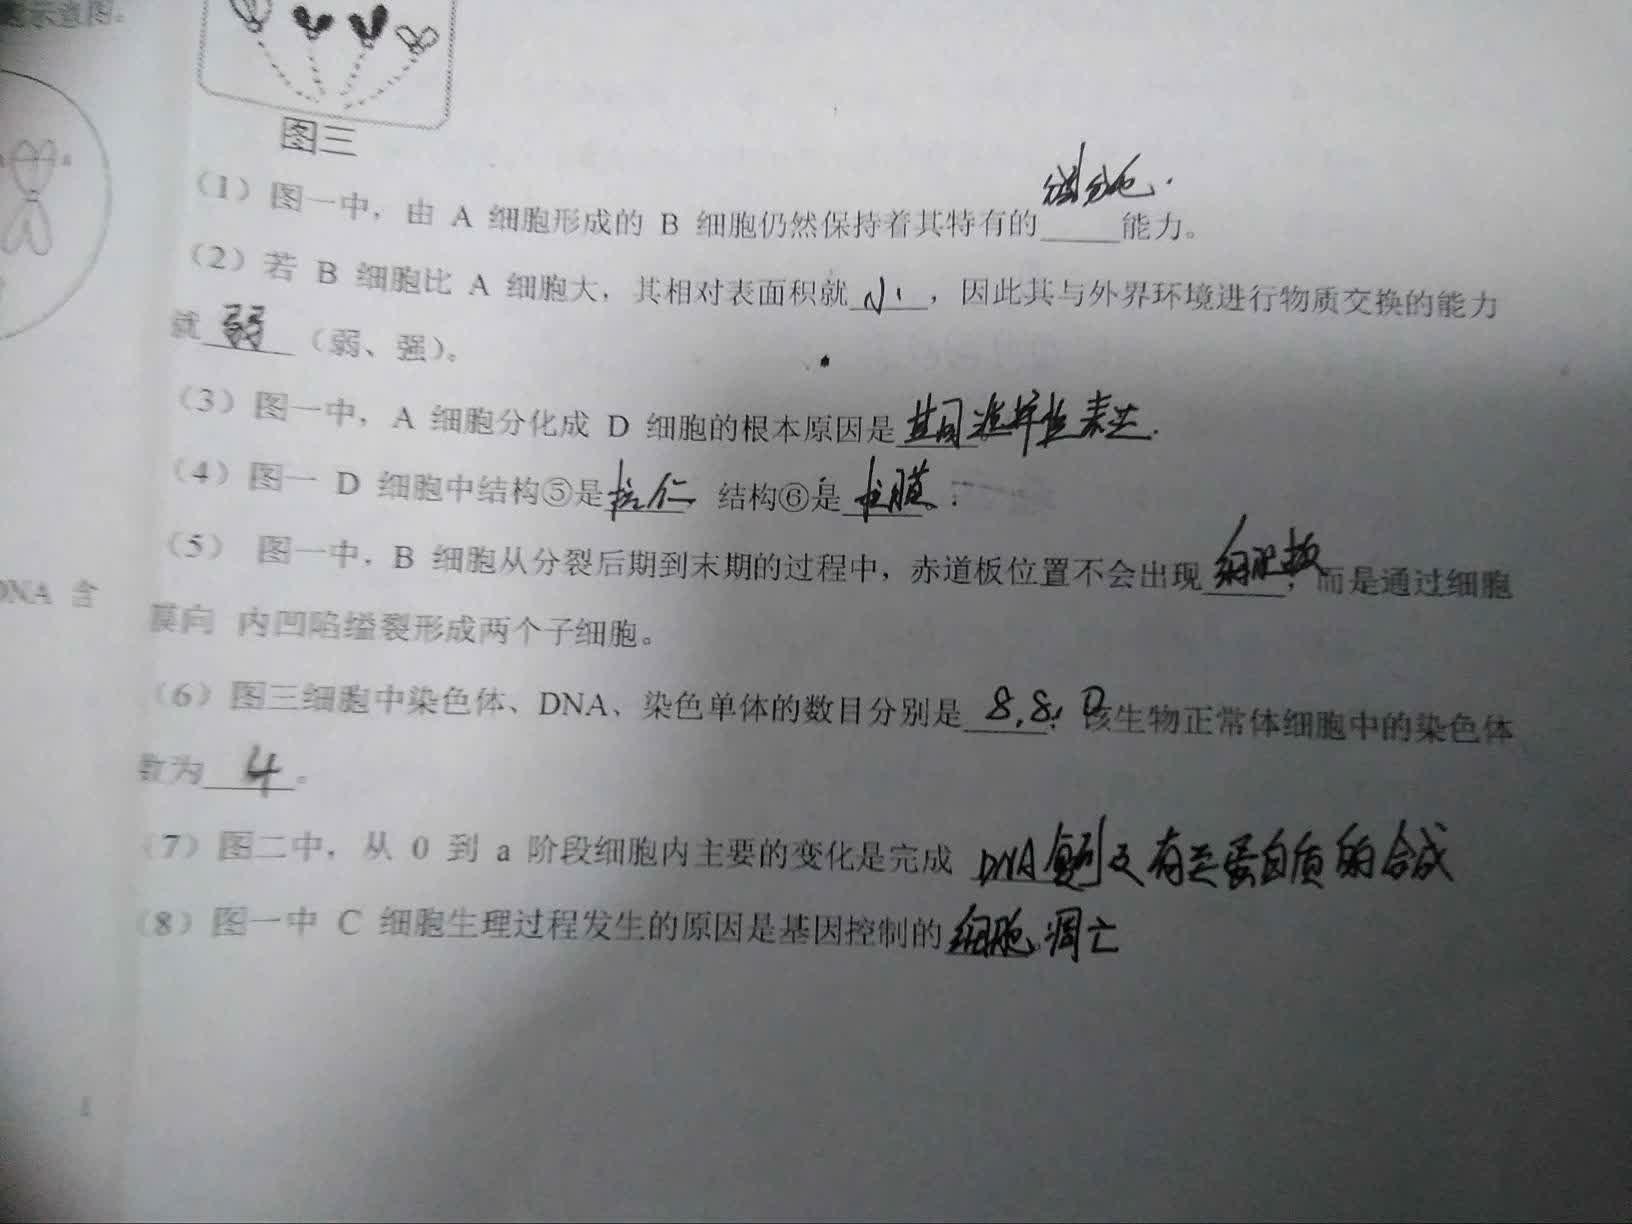 示意图。
图三
(1) 图一中，由 A 细胞形成的 B 细胞仍然保持着其特有的 能力。
(2) 若 B 细胞比 A 细胞大，其相对表面积就 小，因此其与外界环境进行物质交换的能力
就 弱 (弱、强)。
(3) 图一中，A 细胞分化成 D 细胞的根本原因是 选择性表达.
(4) 图一 D 细胞中结构⑤是 核仁，结构⑥是 核膜。；
(5) 图一中，B 细胞从分裂后期到末期的过程中，赤道板位置不会出现 细胞板，而是通过细胞
DNA 含
膜向 内凹陷缢裂形成两个子细胞。
(6) 图三细胞中染色体、DNA、染色单体的数目分别是 8,8,0；该生物正常体细胞中的染色体
数为 4。
(7) 图二中，从 0 到 a 阶段细胞内主要的变化是完成 DNA复制及有关蛋白质的合成
(8) 图一中 C 细胞生理过程发生的原因是基因控制的 细胞。凋亡
1